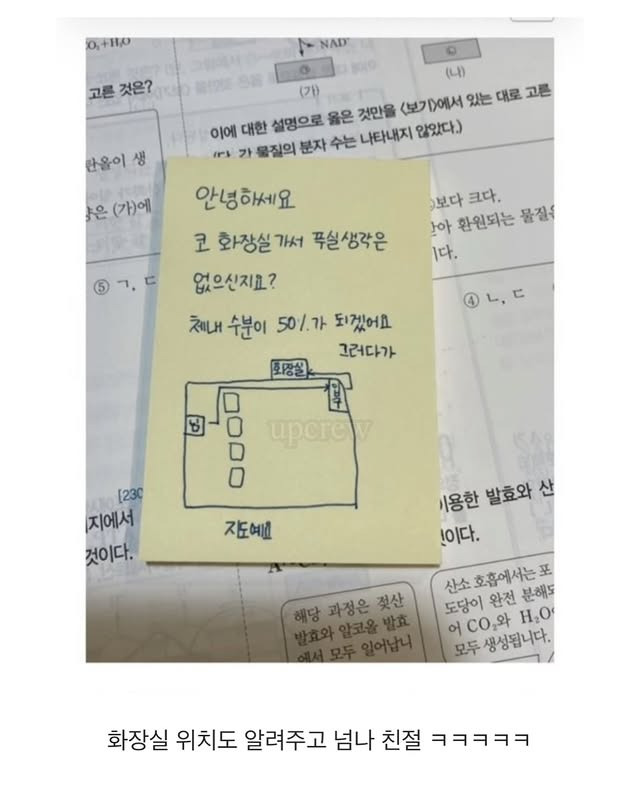 CO₂+H₂O
NAD⁺
㉠
㉡
(가)
(나)
고른 것은?
이에 대한 설명으로 옳은 것만을 <보기>에서 있는 대로 고른
(단, 각 물질의 분자 수는 나타내지 않았다.)
란올이 생
양은 (가)에
보다 크다.
아 환원되는 물질은
이다.
⑤ ㄱ, ㄷ
④ ㄴ, ㄷ
안녕하세요
코 화장실 가서 푹실 생각은
없으신지요?
체내 수분이 50%가 되겠어요
그러다가
화장실
입구
남
upcrew
지도예요
[230
지에서
것이다.
이용한 발효와 산
것이다.
해당 과정은 젖산
발효와 알코올 발효
에서 모두 일어납니
산소 호흡에서는 포
도당이 완전 분해되
어 CO₂와 H₂O
모두 생성됩니다.
화장실 위치도 알려주고 넘나 친절 ㅋㅋㅋㅋㅋ